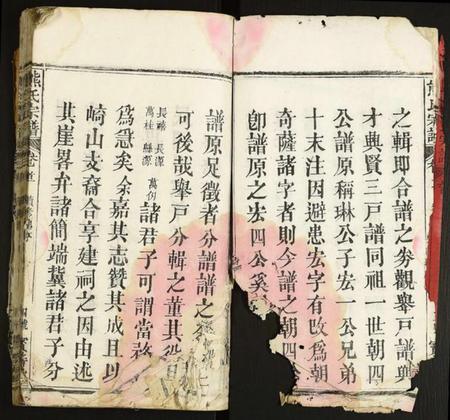 之輯即合譜之券觀舉戸譜與
才典賢三戸譜同祖一世朝四
公譜原稱琳公子宏一公兄弟
十末注因避患宏字有攺為朝
奇薩諸字者則今譜之朝四公
卽譜原之宏四公奚
譜原足徵者分譜譜之
可後哉舉戸分輯之董其役
長禧 長源 萬桂 縣源 萬例 諸君子可謂當務
為急矣余嘉其志贊其成且以
崎山支裔合享建祠之因由述
其崖畧弁諸簡端冀諸君子分
熊氏宗譜
卷首